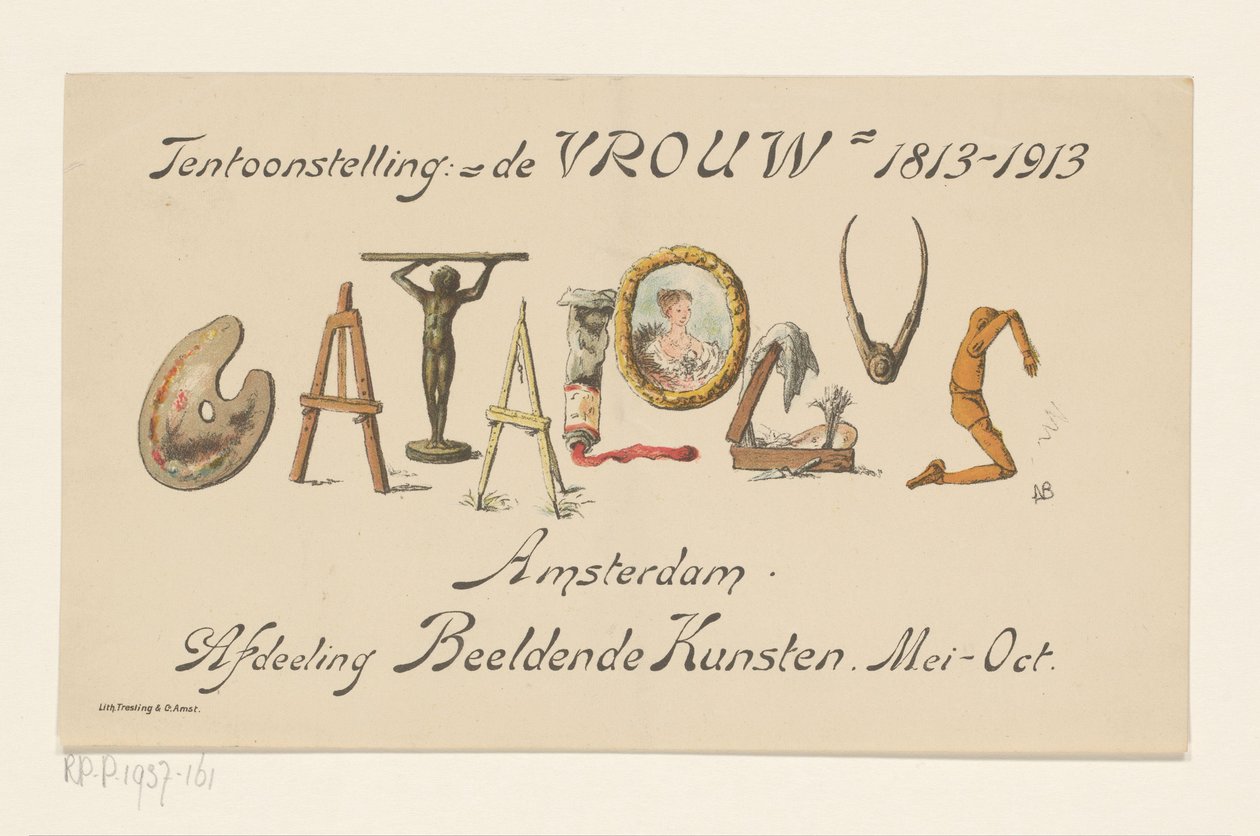 Tentoonstelling:=de VROUW = 1813-1913
CATALOGUS
AB
Amsterdam.
Afdeeling Beeldende Kunsten. Mei-Oct.
Lith. Tresling & Co. Amst.
RP-P-1937-161